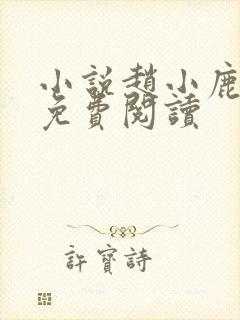 小說趙小鹿
免費閱讀
許寶詩